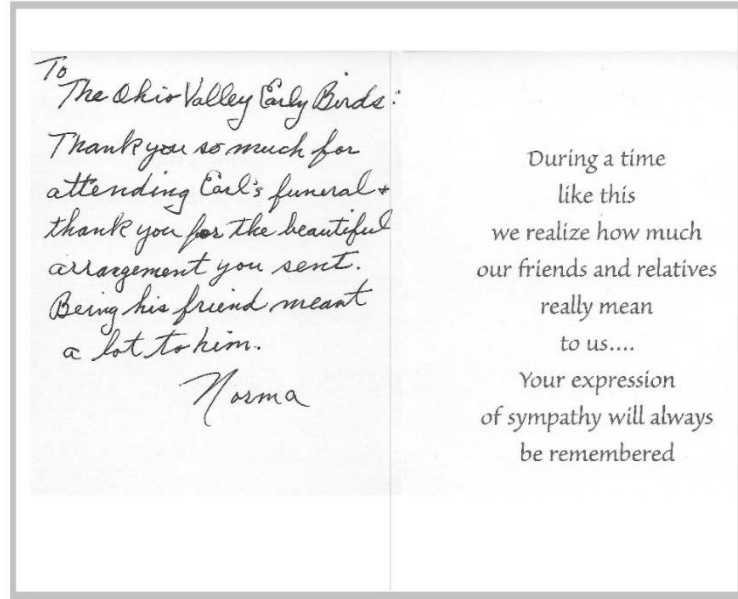 To
The Ohio Valley Early Birds:
Thank you so much for
attending Earl's funeral +
thank you for the beautiful
arrangement you sent.
Being his friend meant
a lot to him.
Norma
During a time
like this
we realize how much
our friends and relatives
really mean
to us....
Your expression
of sympathy will always
be remembered